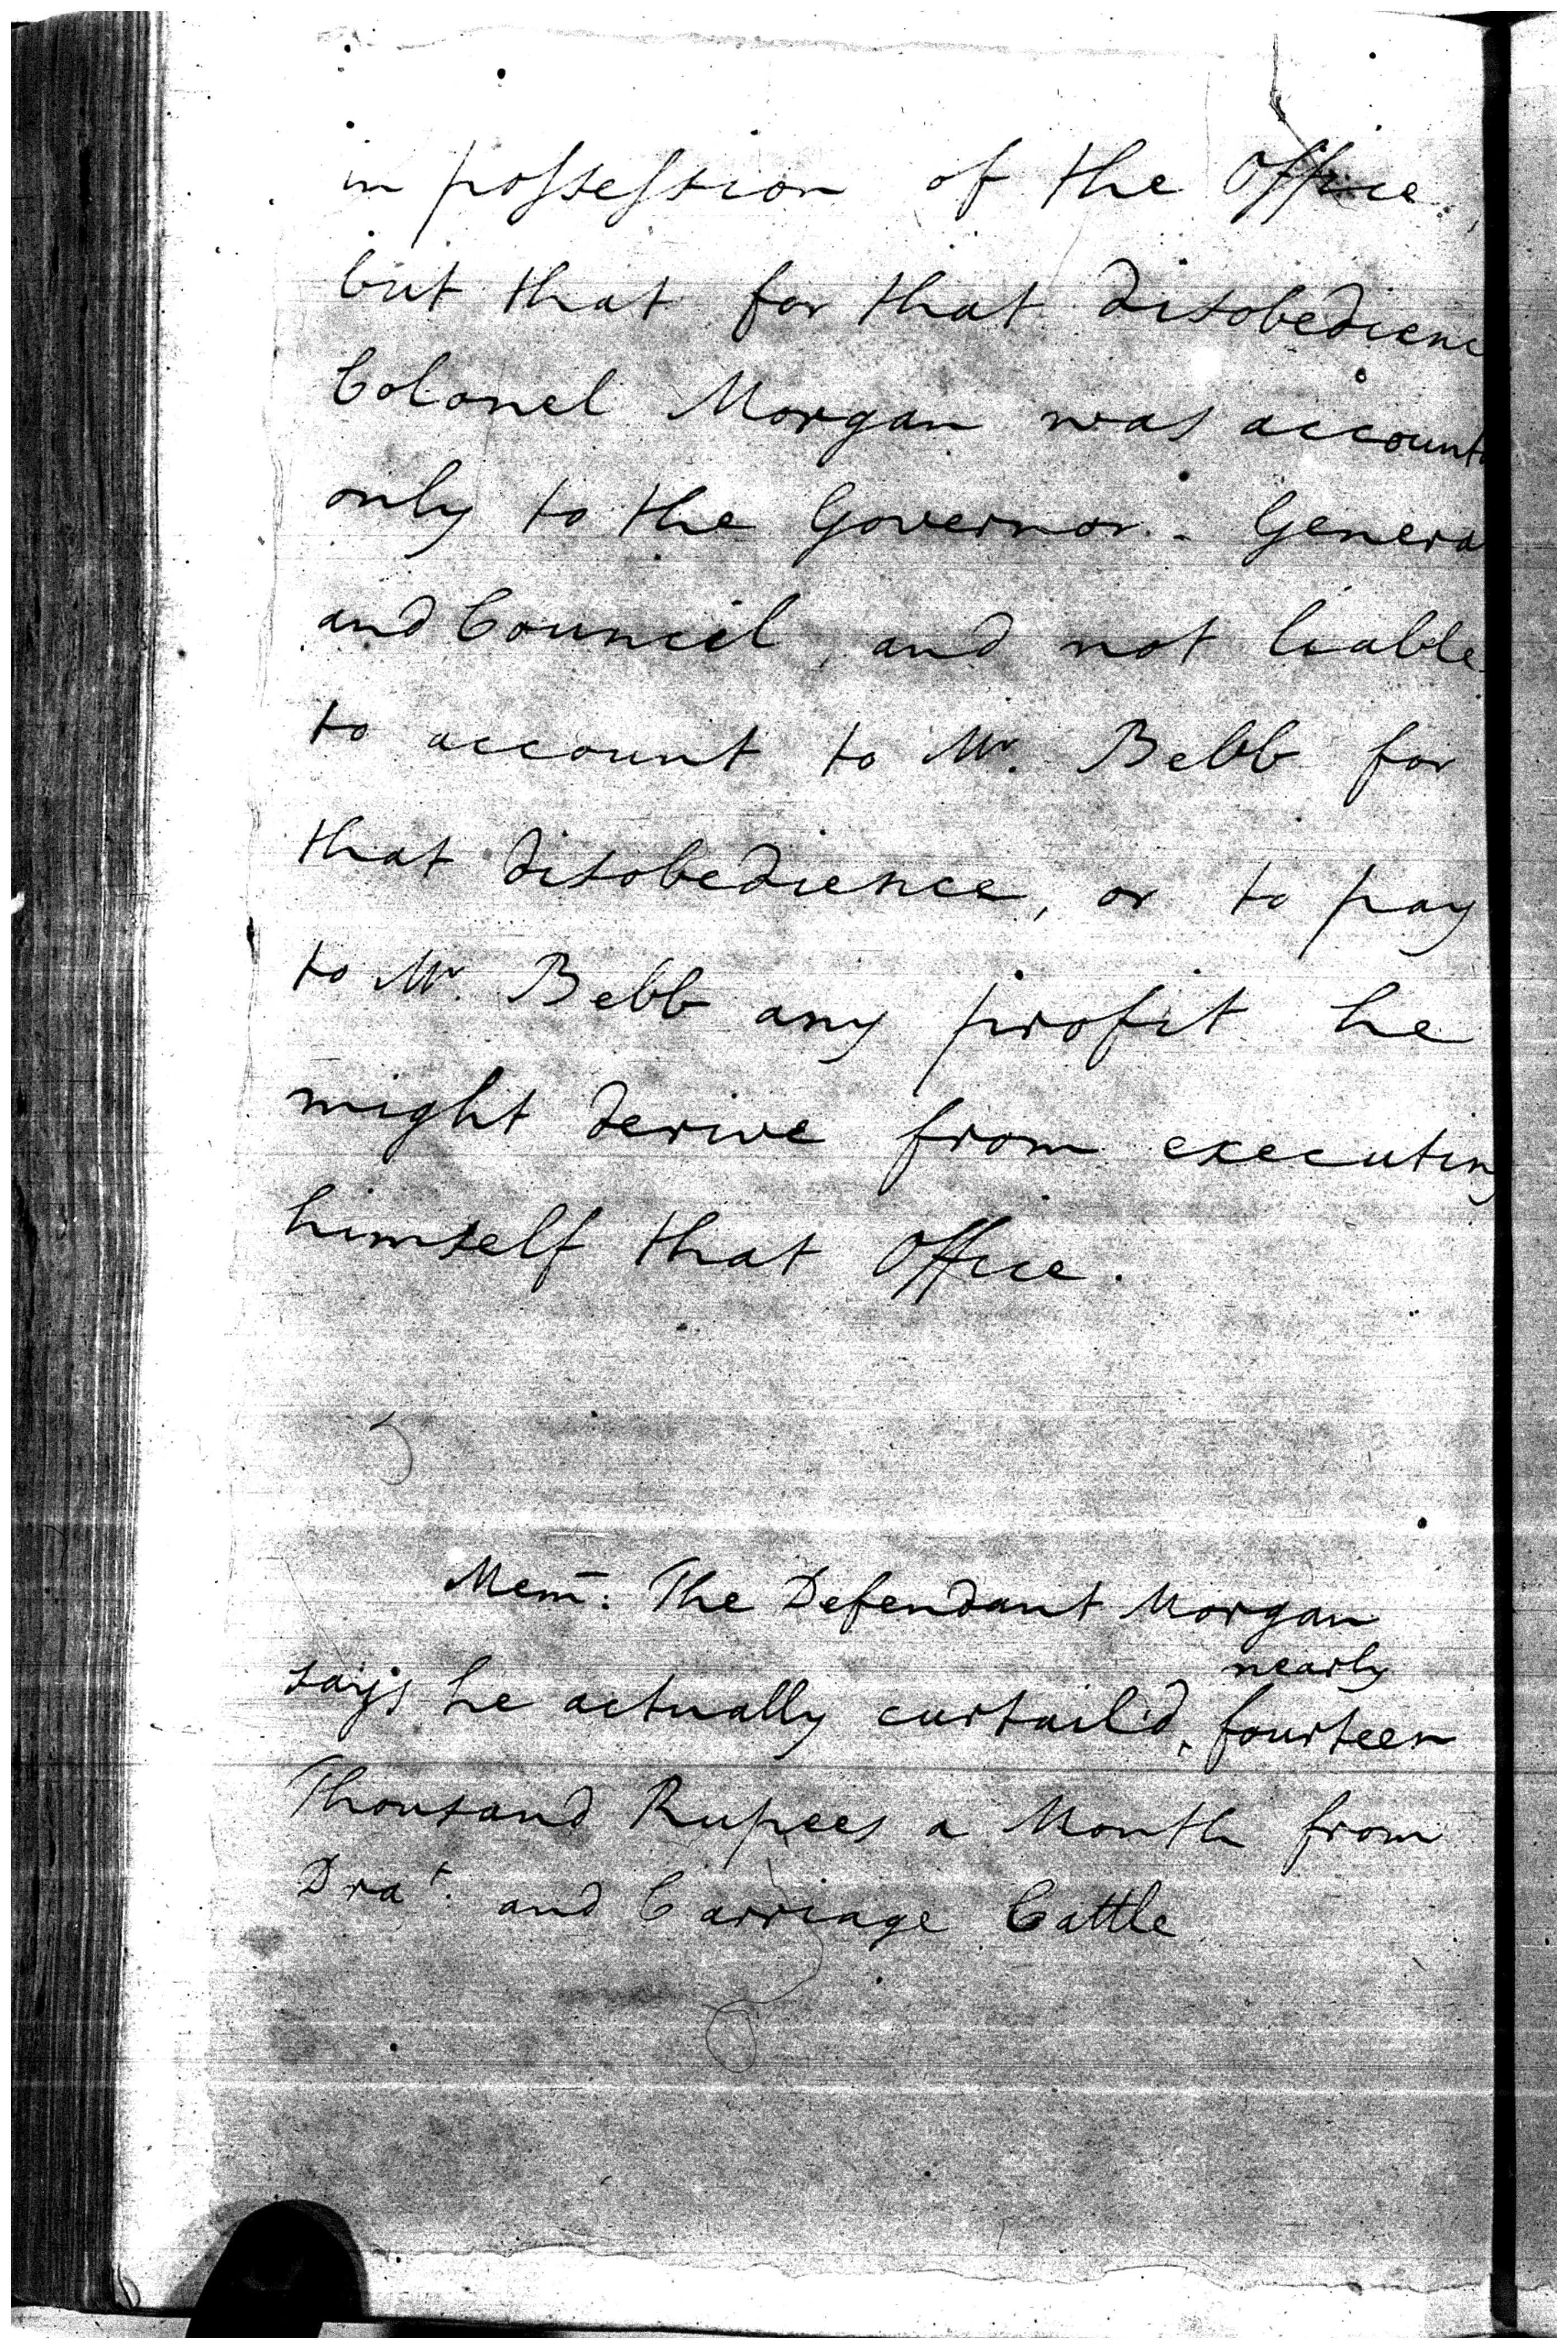 in possession of the Office,
but that for that disobedienc
Colonel Morgan was account
only to the Governor - Genera
and Council, and not liable
to account to Mr. Bebb for
that disobedience, or to pay
to Mr. Bebb any profit he
might derive from executing
himself that Office.
Mem: The Defendant Morgan
says he actually curtail'd nearly fourteen
Thousand Rupees a Month from
Drat. and Carriage Cattle